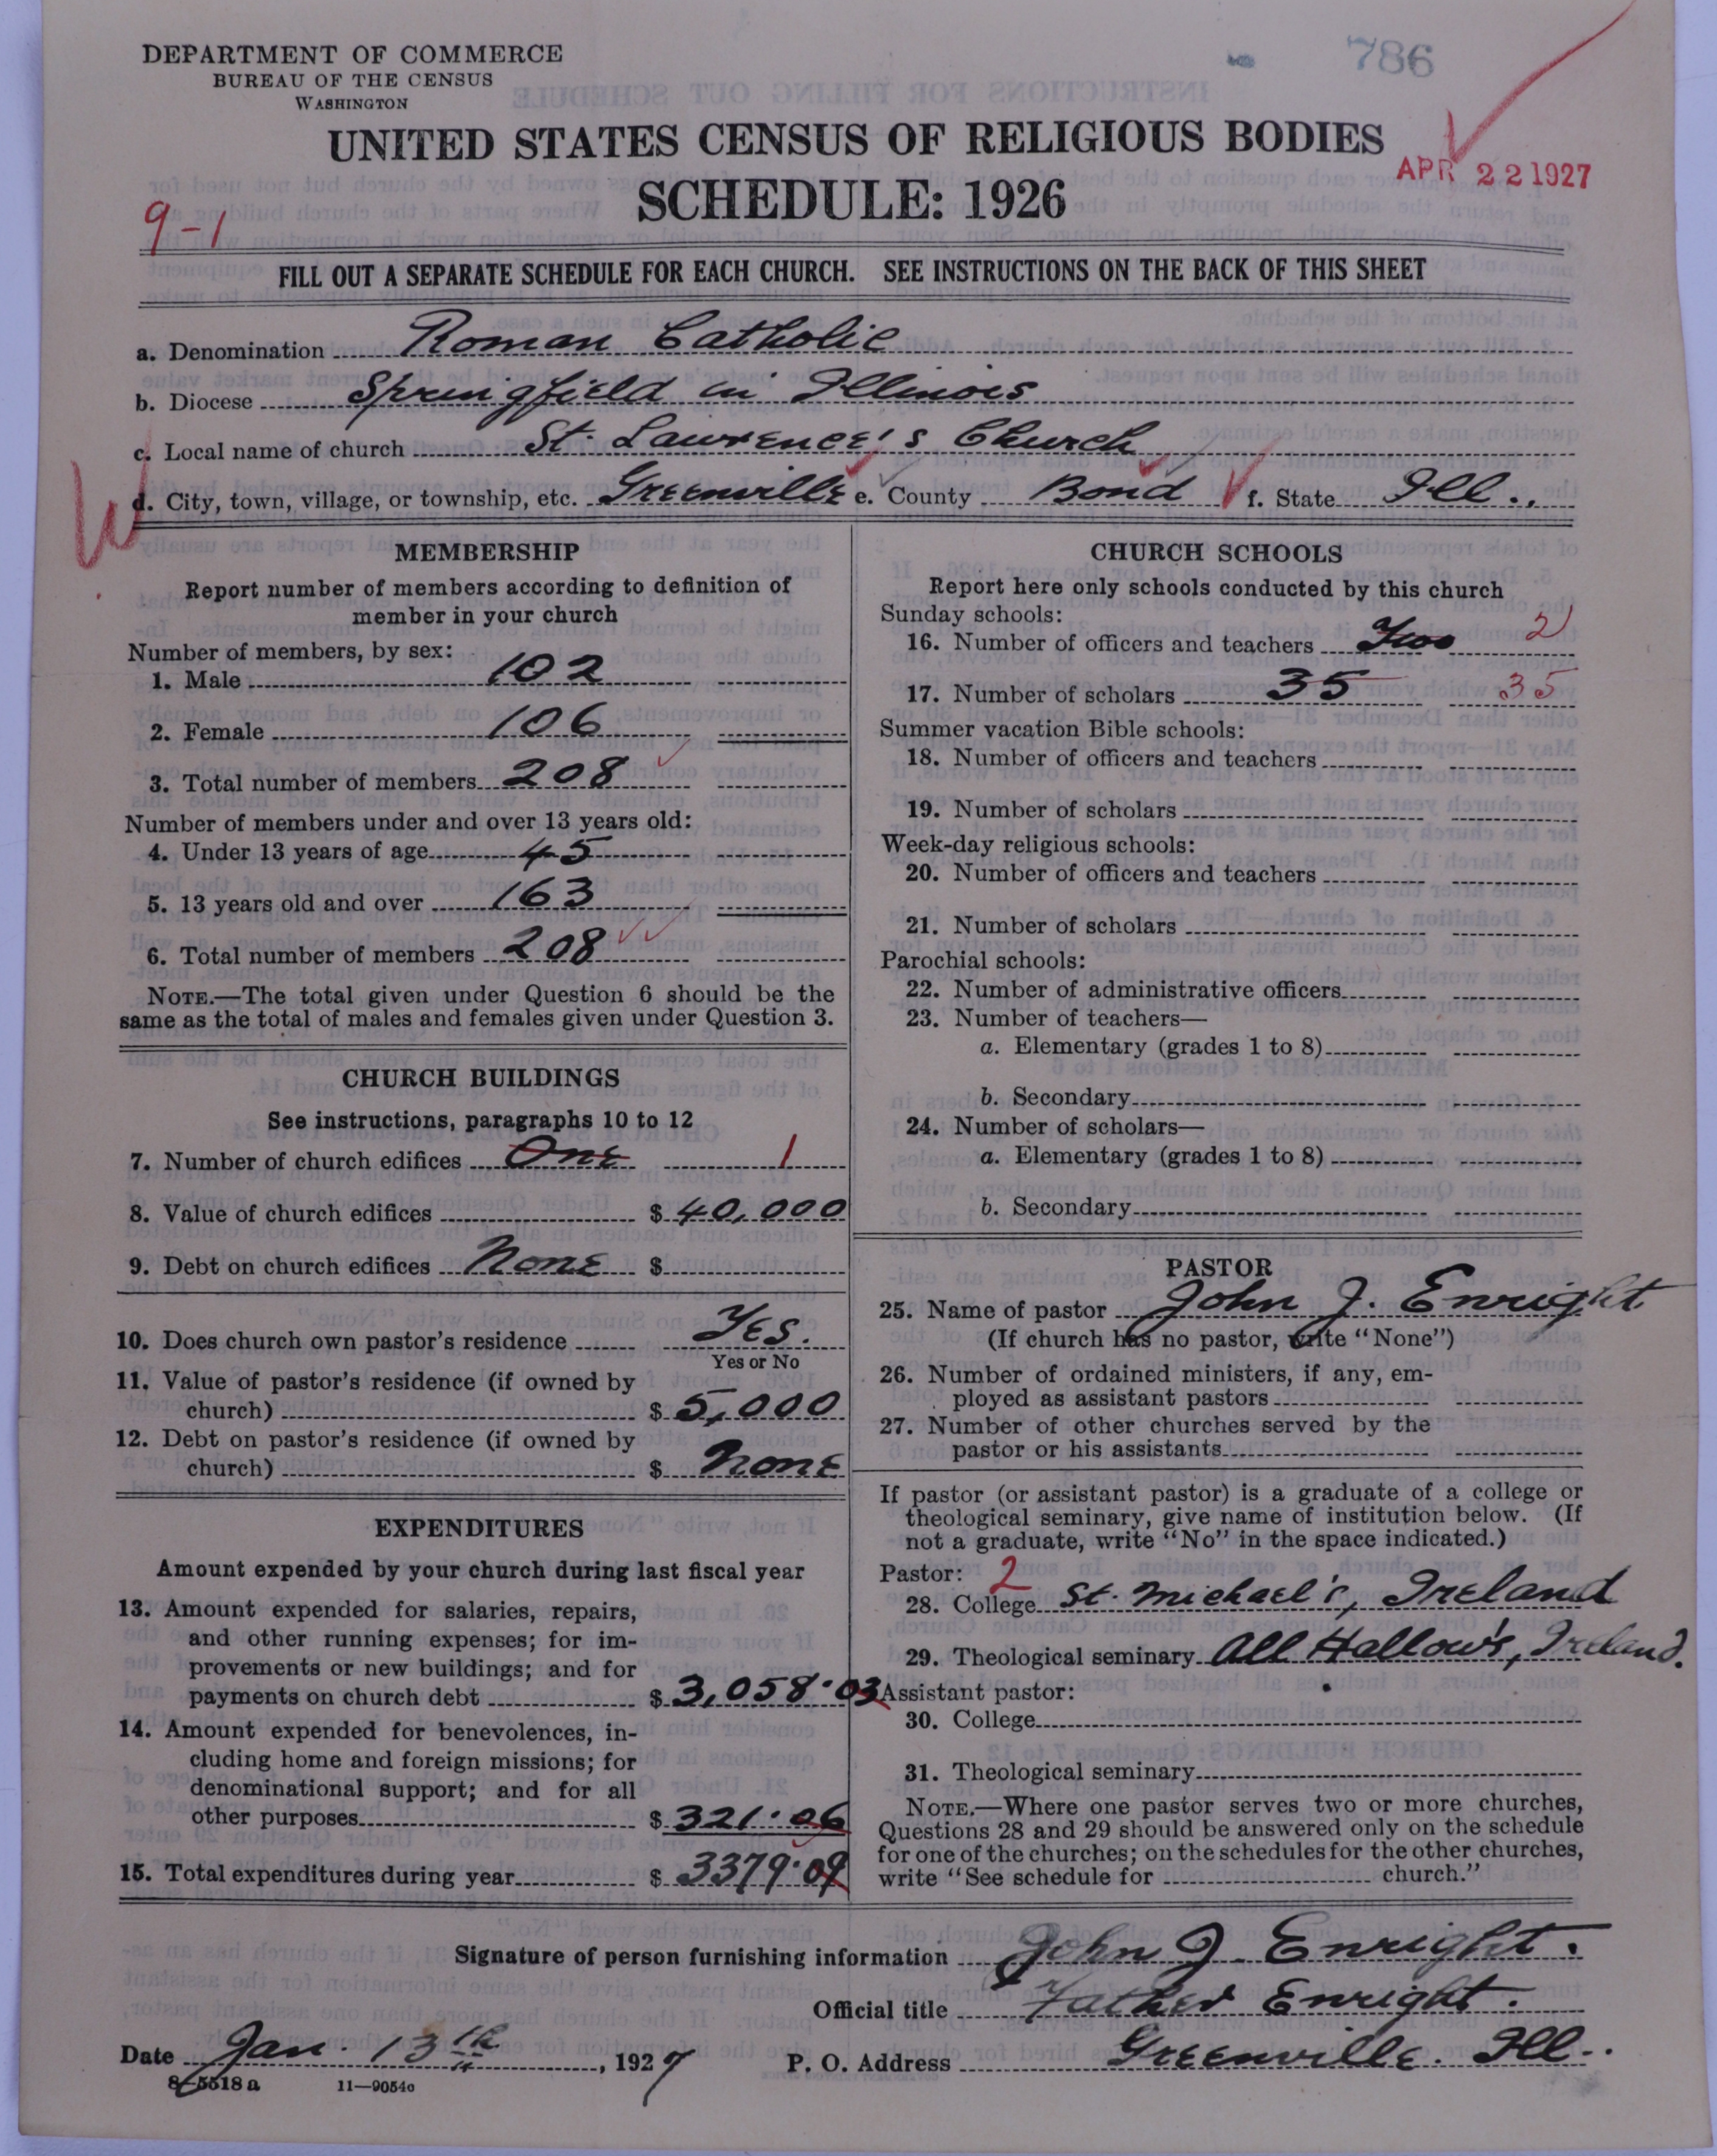 DEPARTMENT OF COMMERCE
BUREAU OF THE CENSUS
WASHINGTON
786
UNITED STATES CENSUS OF RELIGIOUS BODIES
SCHEDULE: 1926
APR 22 1927
9-1
FILL OUT A SEPARATE SCHEDULE FOR EACH CHURCH. SEE INSTRUCTIONS ON THE BACK OF THIS SHEET
a. Denomination Roman Catholic
b. Diocese Springfield in Illinois
c. Local name of church St. Lawrence's Church
d. City, town, village, or township, etc. Greenville e. County Bond f. State Ill.
W
MEMBERSHIP
Report number of members according to definition of
member in your church
Number of members, by sex:
1. Male 102
2. Female 106
3. Total number of members 208
Number of members under and over 13 years old:
4. Under 13 years of age 45
5. 13 years old and over 163
6. Total number of members 208
NOTE.—The total given under Question 6 should be the
same as the total of males and females given under Question 3.
CHURCH BUILDINGS
See instructions, paragraphs 10 to 12
7. Number of church edifices One 1
8. Value of church edifices $ 40,000
9. Debt on church edifices None $
10. Does church own pastor's residence Yes.
Yes or No
11. Value of pastor's residence (if owned by
church) $ 5,000
12. Debt on pastor's residence (if owned by
church) $ None
EXPENDITURES
Amount expended by your church during last fiscal year
13. Amount expended for salaries, repairs,
and other running expenses; for im-
provements or new buildings; and for
payments on church debt $ 3,058.03
14. Amount expended for benevolences, in-
cluding home and foreign missions; for
denominational support; and for all
other purposes $ 321.06
15. Total expenditures during year $ 3379.09
CHURCH SCHOOLS
Report here only schools conducted by this church
Sunday schools:
16. Number of officers and teachers Two 2
17. Number of scholars 35 35
Summer vacation Bible schools:
18. Number of officers and teachers
19. Number of scholars
Week-day religious schools:
20. Number of officers and teachers
21. Number of scholars
Parochial schools:
22. Number of administrative officers
23. Number of teachers—
a. Elementary (grades 1 to 8)
b. Secondary
24. Number of scholars—
a. Elementary (grades 1 to 8)
b. Secondary
PASTOR
25. Name of pastor John J. Enright
(If church has no pastor, write "None")
26. Number of ordained ministers, if any, em-
ployed as assistant pastors
27. Number of other churches served by the
pastor or his assistants
If pastor (or assistant pastor) is a graduate of a college or
theological seminary, give name of institution below. (If
not a graduate, write "No" in the space indicated.)
Pastor: 2
28. College St. Michael's, Ireland
29. Theological seminary All Hallow's, Ireland.
Assistant pastor:
30. College
31. Theological seminary
NOTE.—Where one pastor serves two or more churches,
Questions 28 and 29 should be answered only on the schedule
for one of the churches; on the schedules for the other churches,
write "See schedule for church."
Signature of person furnishing information John J. Enright.
Official title Father Enright.
Date Jan. 13th, 1927 P. O. Address Greenville. Ill.
8-5518a 11-9054c